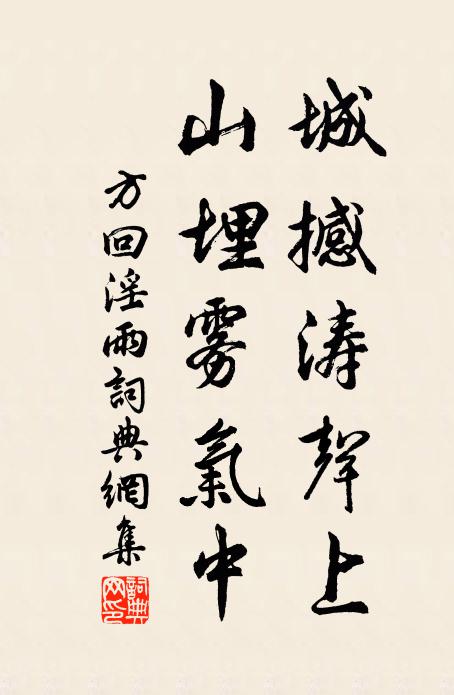 城撼涛聲上
山埋雾氣中
方回淫雨詞典網集
詞典网印